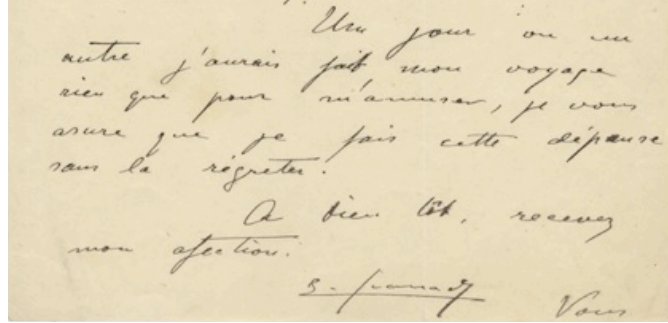 Un jour ou un
autre j'aurais fait mon voyage
rien que pour m'amuser, je vous
asure que je fais cette dépense
sans la régreter.
A bien tôt, recevez
mon afection.
E. Granados
Vous